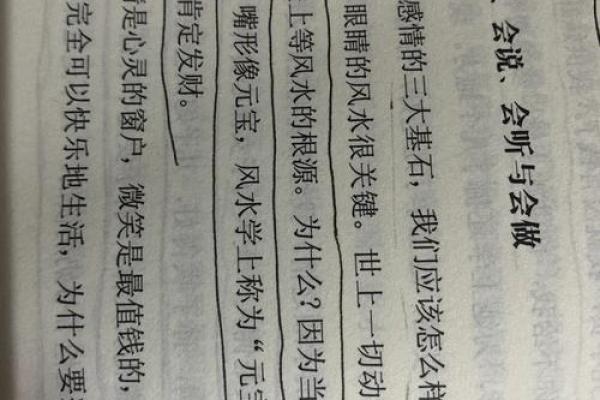 、会说、会听与会做
感情的三大基石，我们应该怎么样
眼睛的风水很关键。世上一切动
上等风水的根源。为什么？因为当
嘴形像元宝，风水学上称为“元宝
肯定发财。
是心灵的窗户，微笑是最值钱的，
完全可以快乐地生活，为什么要